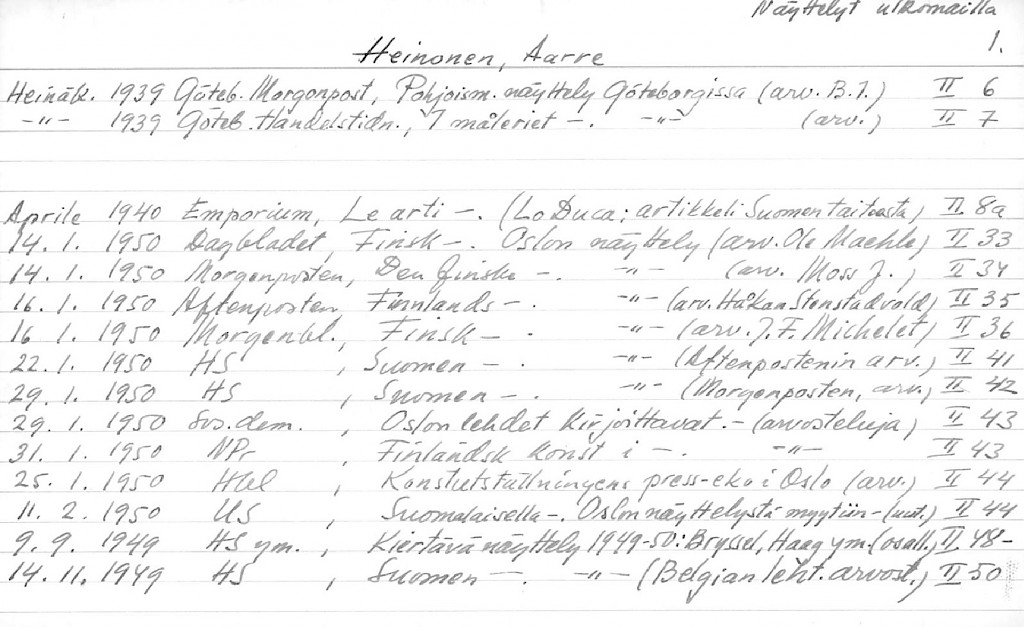 Näyttelyt ulkomailla
1.
Heinonen, Aarre
Heinäk. 1939 Göteb. Morgonpost, Pohjoism. näyttely Göteborgissa (arv. B.J.) II 6
-"- 1939 Göteb. Handelstidn., I måleriet -. -"- (arv.) II 7
Aprile 1940 Emporium, Le arti -. (Lo Duca; artikkeli Suomen taiteesta) II 8a
14. 1. 1950 Dagbladet, Finsk -. Oslon näyttely (arv. Ole Maehle) II 33
14. 1. 1950 Morgenposten, Den finske -. -"- (arv. Moss J.) II 34
16. 1. 1950 Aftenposten, Finnlands -. -"- (arv. Håkan Stenstadvold) II 35
16 1. 1950 Morgenbl., Finsk - -"- (arv. J.F. Michelet) II 36
22. 1. 1950 HS, Suomen -. -"- (Aftenpostenin arv.) II 41
29. 1. 1950 HS, Suomen -. -"- (Morgenposten, arv.) II 42
29. 1. 1950 Sos.dem., Oslon lehdet kirjoittavat. - (arvosteluja) II 43
31. 1. 1950 NPr, Finländsk konst i -. -"- II 43
25. 1. 1950 Hbl, Konstutställningens press-eko i Oslo (arv.) II 44
11. 2. 1950 US, Suomalaisella -. Oslon näyttelystä myytiin - (uut.) II 44
9. 9. 1949 HS ym., Kiertävä näyttely 1949-50: Bryssel, Haag ym. (osall.) II 48-
14. 11. 1949 HS, Suomen -. -"- (Belgian leht. arvost.) II 50